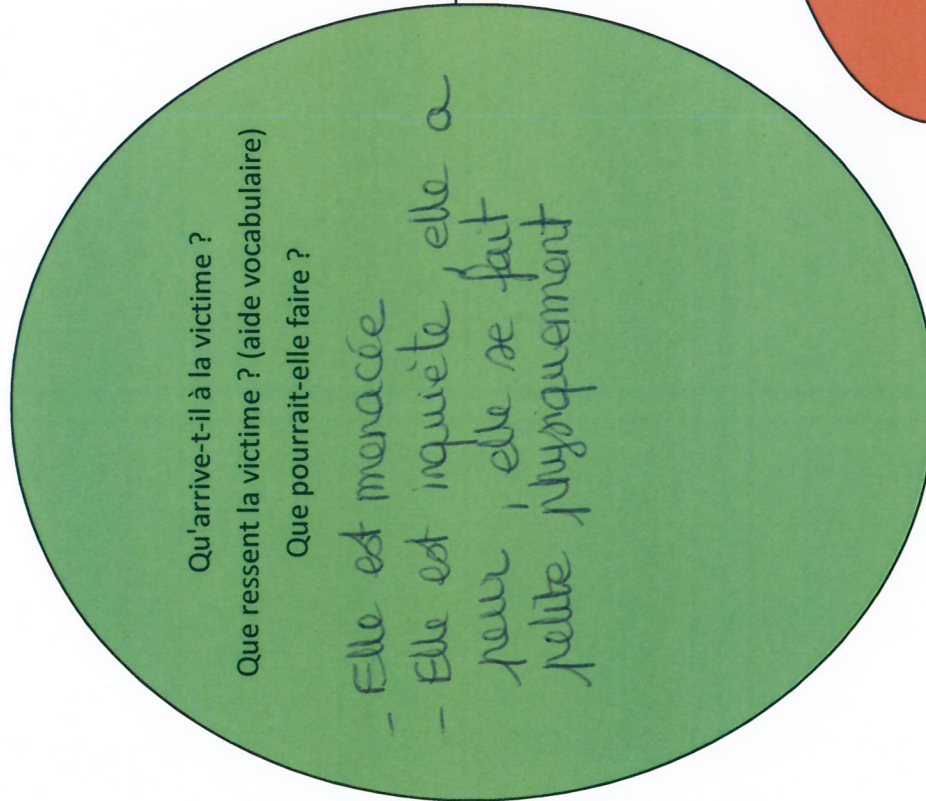 Qu'arrive-t-il à la victime ?
Que ressent la victime ? (aide vocabulaire)
Que pourrait-elle faire ?
- Elle est menacée
- Elle est inquiète, elle a
peur, elle se fait
petite physiquement